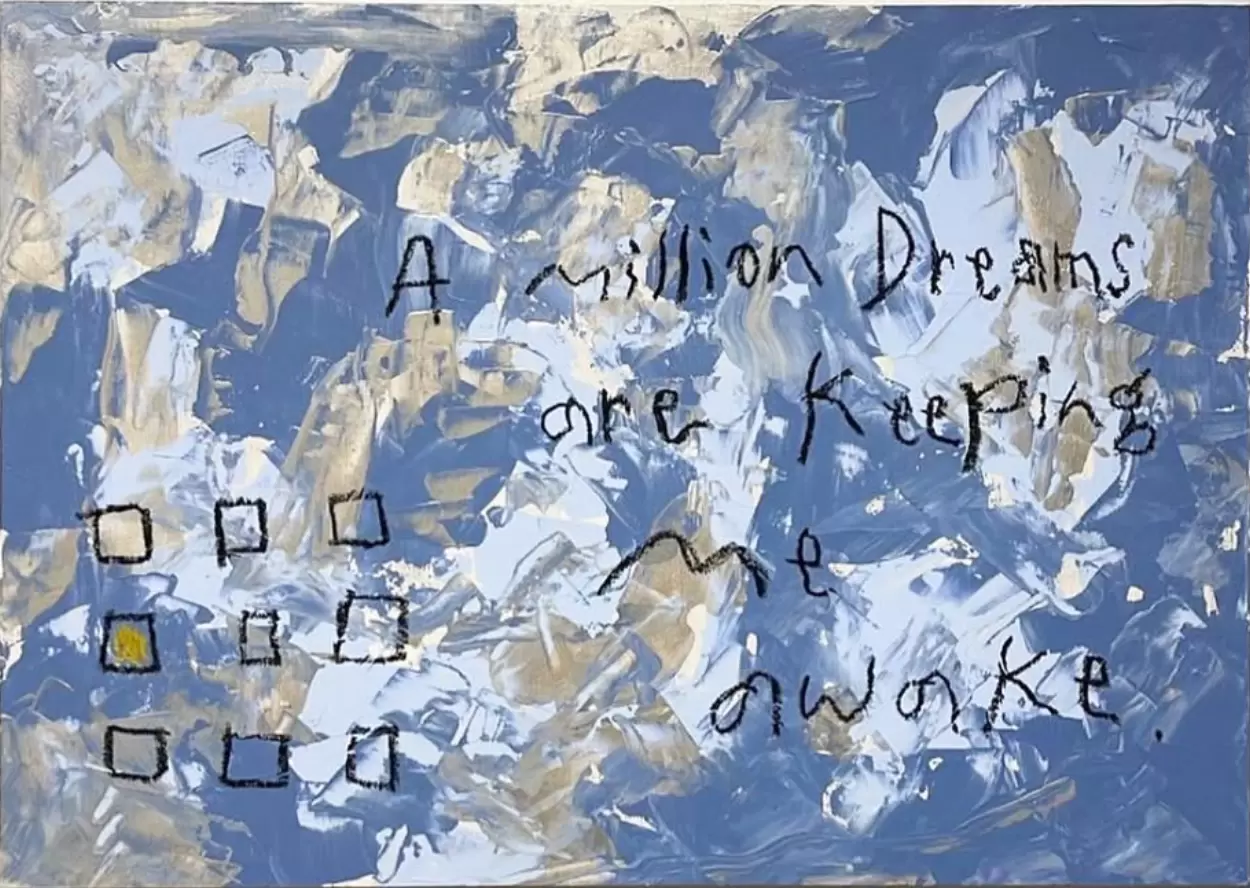 A million Dreams
are Keeping
me
awake.